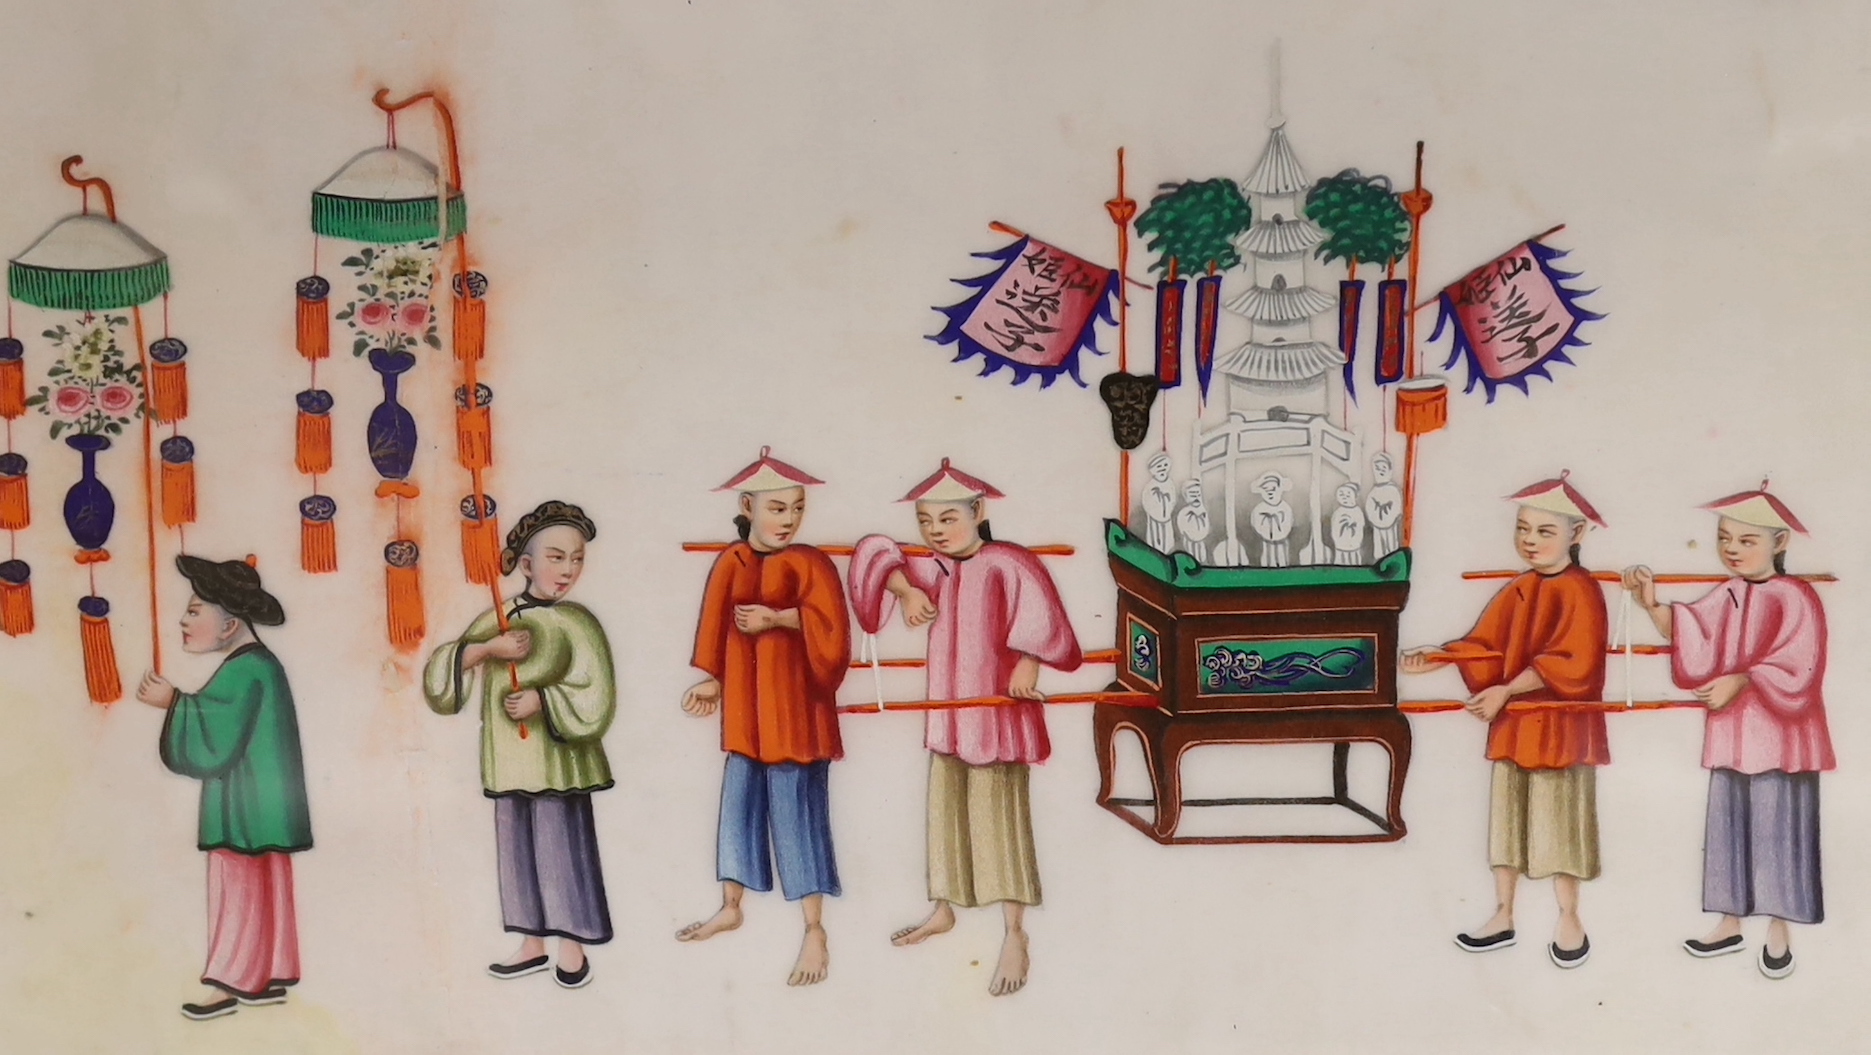 仙姬
送子
仙姬
送子